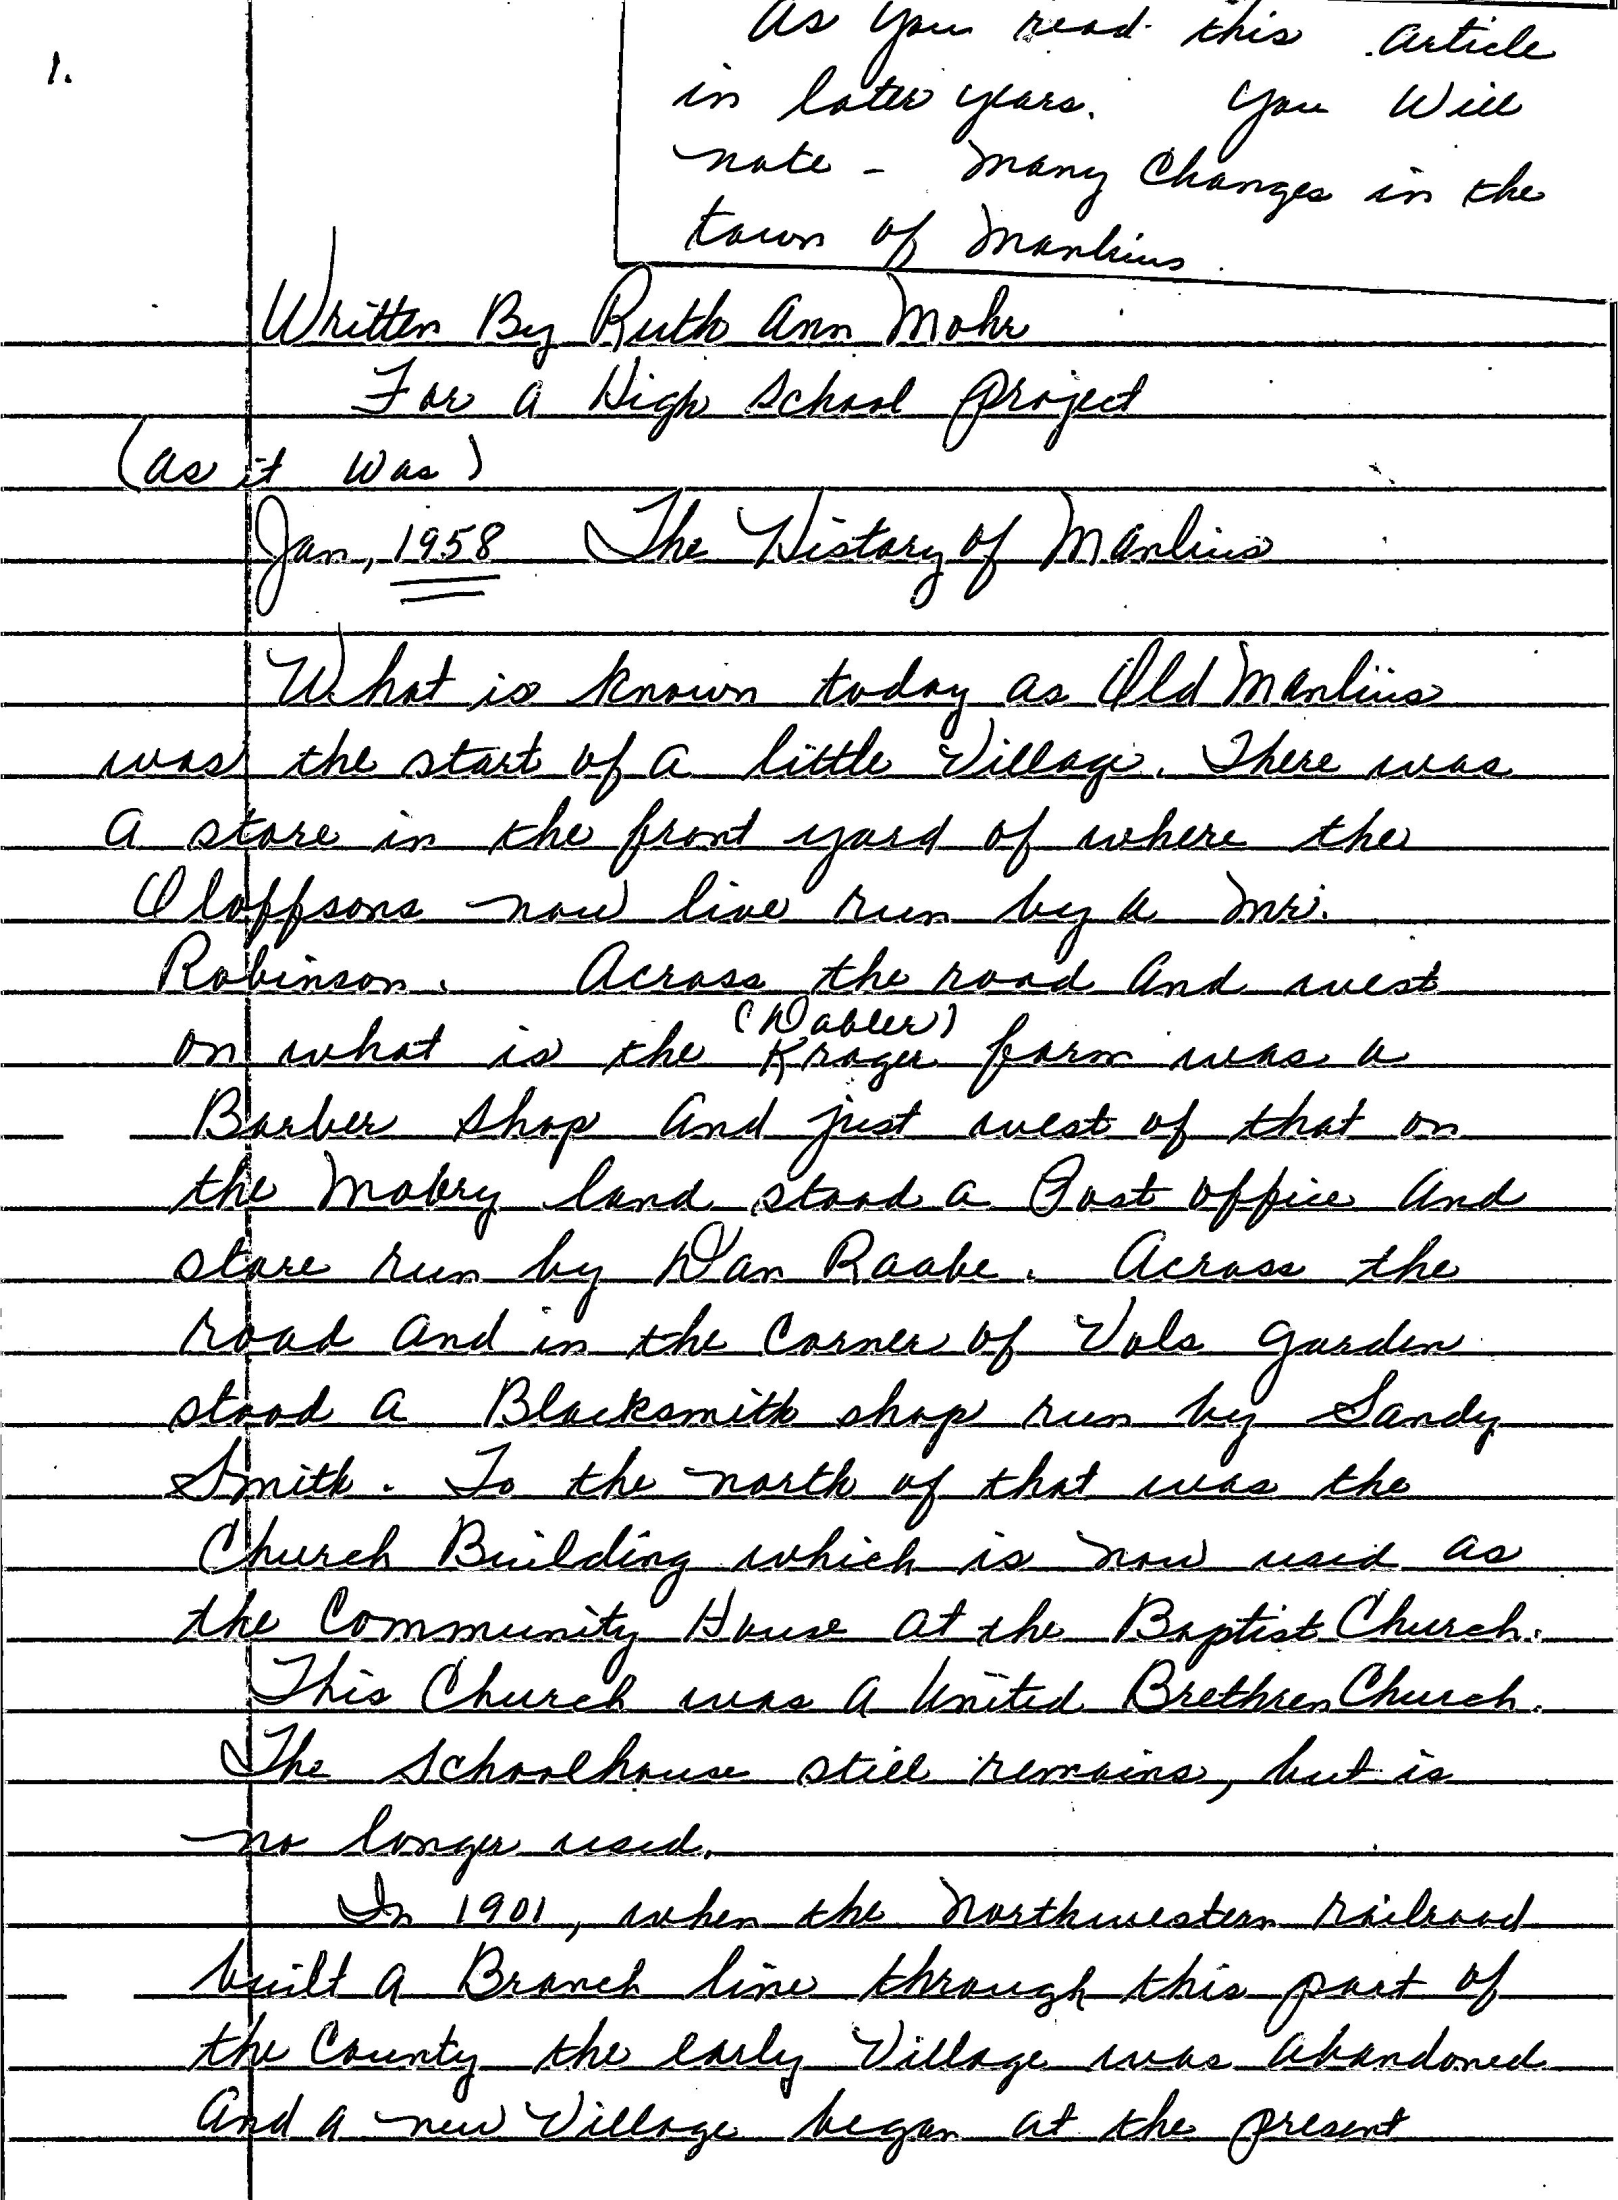 1.
As you read this article
in later years. You Will
note - Many Changes in the
town of Manlius.
Written By Ruth Ann Mohr
For a High School Project
(as it was)
Jan, 1958 The History of Manlius
What is known today as Old Manlius
was the start of a little Village. There was
a store in the front yard of where the
Oloffsons now live run by a Mr.
Robinson. Across the road and west
(Dabler)
on what is the Krager farm was a
Barber Shop and just west of that on
the Mabry land stood a Post office and
store run by Dan Raabe. Across the
road and in the Corner of Vols garden
stood a Blacksmith shop run by Sandy
Smith. To the north of that was the
Church Building which is now used as
the Community House at the Baptist Church.
This Church was a United Brethren Church.
The Schoolhouse still remains, but is
no longer used.
In 1901, when the Northwestern railroad
built a Branch line through this part of
the County the early Village was abandoned
and a new Village began at the present